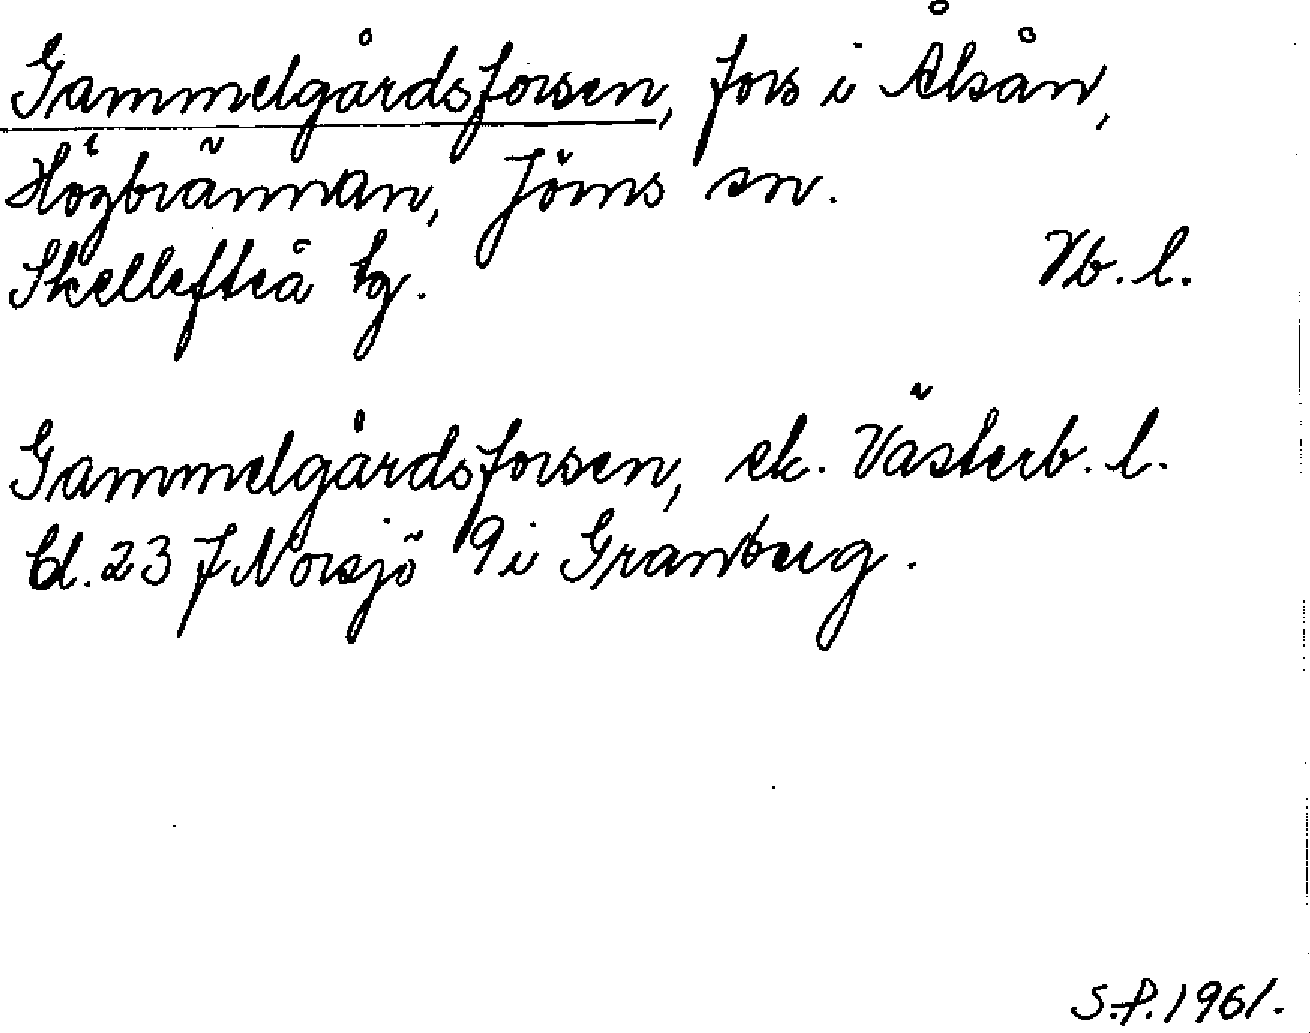 Gammelgårdsforsen, fors i Ålsån,
Högbrännan, Jörns sn.
Skellefteå tg. Vb. l.
Gammelgårdsforsen, ek. Västerb. l.
bl. 23 J Norsjö 9 i Granberg.
S.P. 1961.